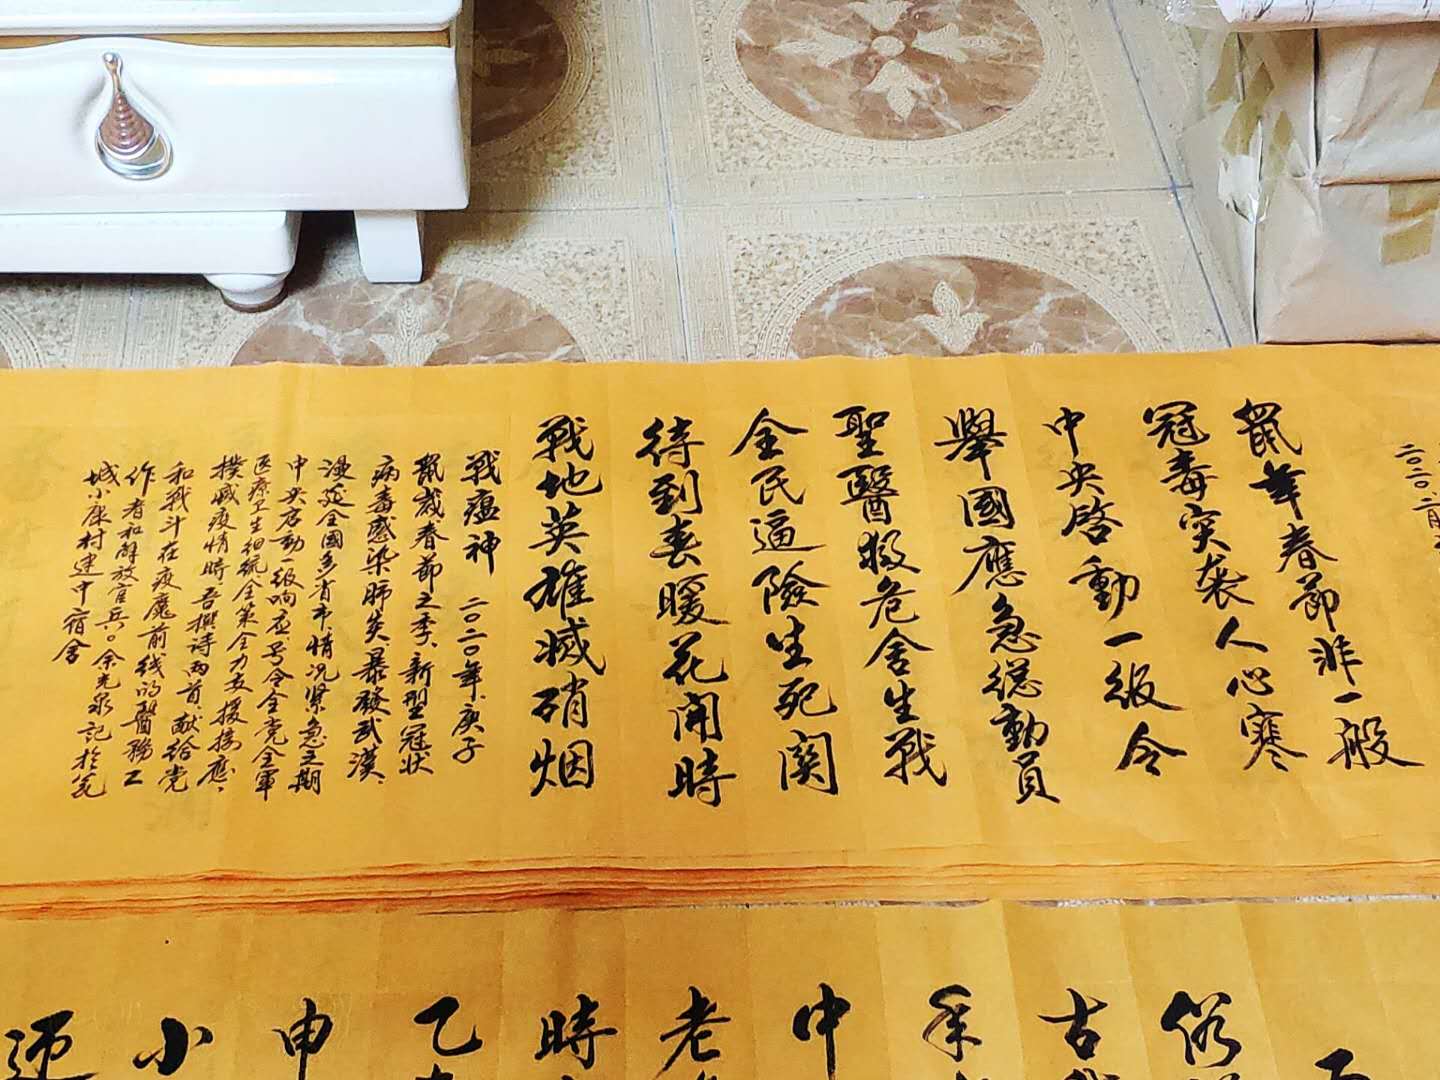 二〇二〇.二月
鼠年春節非一般
冠毒突袭人心寒
中央啓動一級令
舉國應急總動員
聖醫救危舍生戰
全民逼險生死関
待到春暖花開時
戰地英雄滅硝烟
戰瘟神 二〇二〇年、庚子
鼠歲春節之季、新型冠状
病毒感染肺炎暴發武漢、
漫延全國多省市情况緊急之期
中央启动一级响应号令全党全軍
医療卫生细統全策全力支援接應、
撲滅疫情時吾撰诗两首献给党
和战斗在疫魔前线的醫務工
作者和解放官兵。余光泉記於芜
城小康村建中宿舍
俗
古
手
中
老
時
乙
申
小
迎